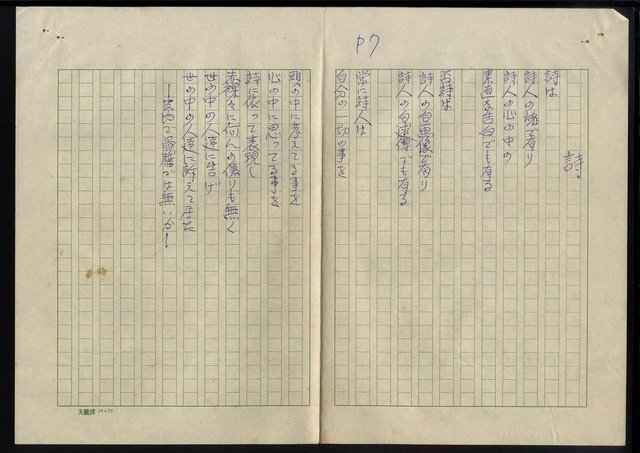 P7
詩
詩は
詩人の魂で有り
詩人の心の中の
素直な告白でも有る
否詩は
詩人の自画像で有り
詩人の自叙傳でも有る
常に詩人は
自分の一切の事を
頭の中に考えてる事を
心の中に思ってる事を
詩に依って表現し
赤裸々に何んの偽りも無く
世の中の人達に告げ
世の中の人達に訴えて居た
で は無いか！
天龍牌 24×25